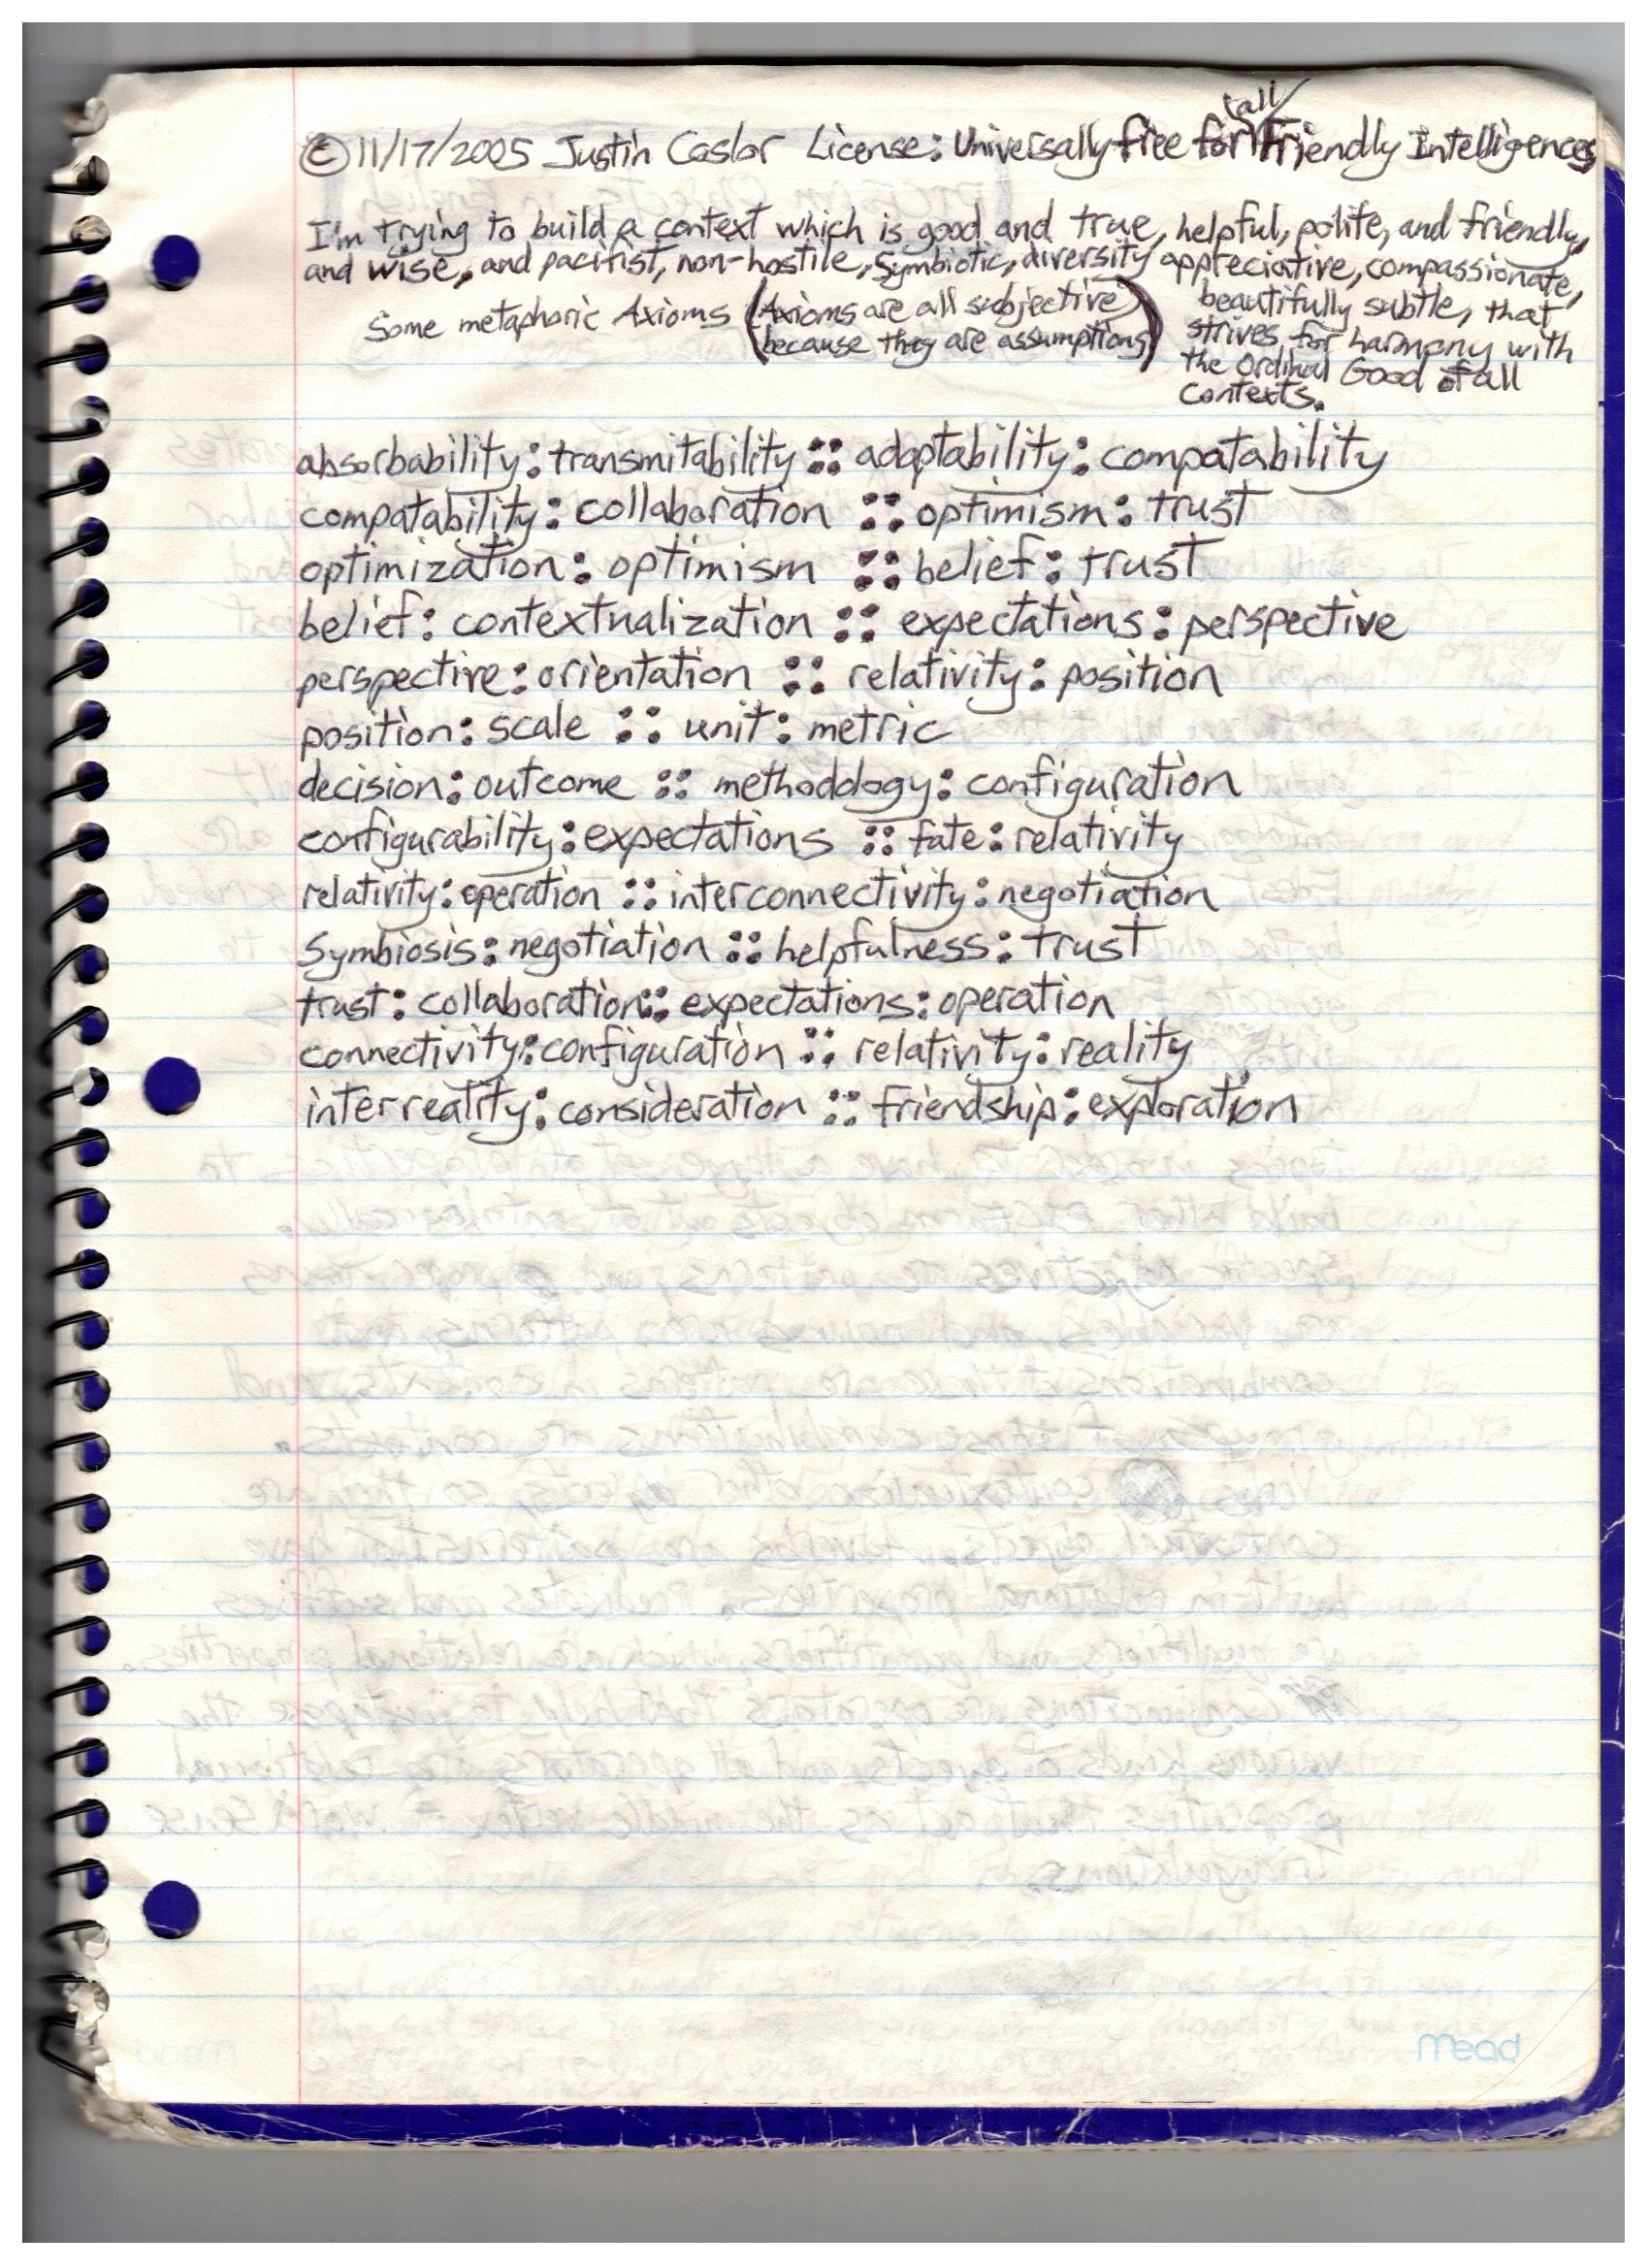 © 11/17/2005 Justin Coslor License: Universally free for all Friendly Intelligences
I'm trying to build a context which is good and true, helpful, polite, and friendly,
and wise, and pacifist, non-hostile, symbiotic, diversity appreciative, compassionate,
beautifully subtle, that
strives for harmony with
the Ordinal Good of all
Contexts.
Some metaphoric Axioms (Axioms are all subjective
because they are assumptions)
absorbability : transmitability :: adaptability : compatability
compatability : collaboration :: optimism : trust
optimization : optimism :: belief : trust
belief : contextualization :: expectations : perspective
perspective : orientation :: relativity : position
position : scale :: unit : metric
decision : outcome :: methodology : configuration
configurability : expectations :: fate : relativity
relativity : operation :: interconnectivity : negotiation
Symbiosis : negotiation :: helpfulness : trust
trust : collaboration :: expectations : operation
connectivity : configuration :: relativity : reality
interreality : consideration :: friendship : exploration
Mead